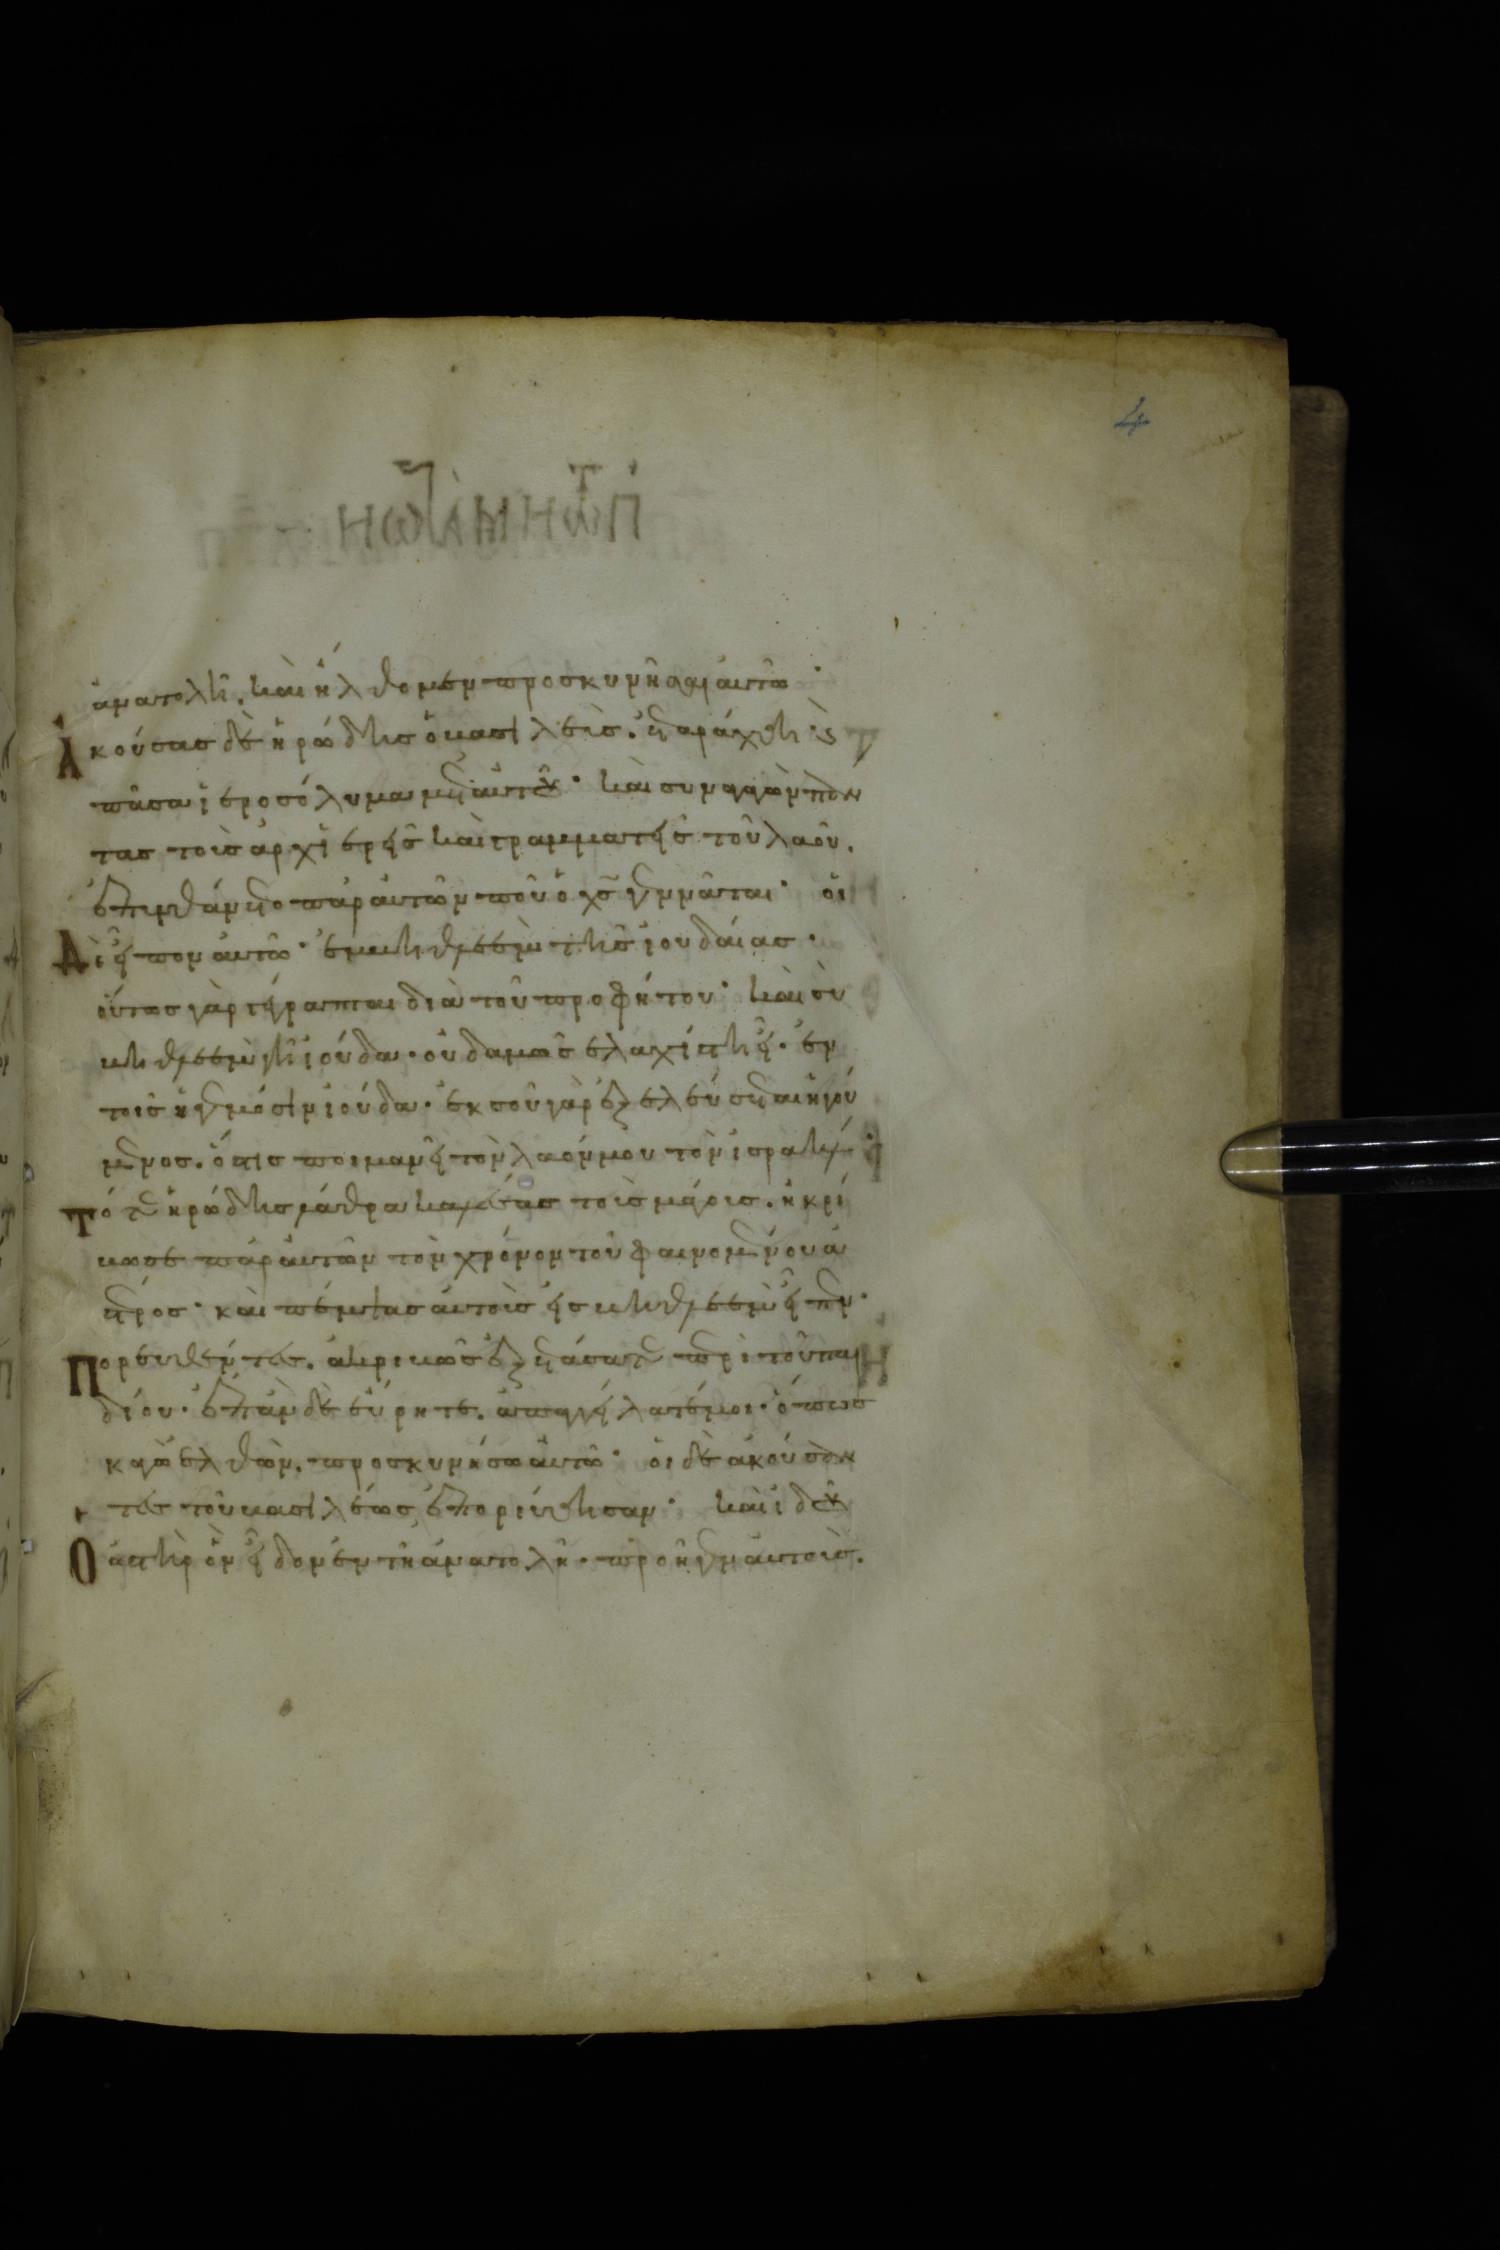 4
ἀνατολῆ. καὶ ἤλθομεν προσκυνῆσαι αὐτῶ·
Ἀκούσας δὲ ἡρώδης ὁ βασιλεὺς. ἐταράχθη καὶ
πᾶσα ἱεροσόλυμα μετ αὐτοῦ· καὶ συναγαγὼν πάν
τας τοὺς ἀρχιερεῖς καὶ γραμματεῖς τοῦ λαοῦ.
ἐπυνθάνετο παρ αὐτῶν ποῦ ὁ χς γεννᾶται· οἱ
Δὲ εἶπον αὐτῶ· ἐν βηθλεεὲμ τῆς ἰουδαίας·
οὕτως γὰρ γέγραπται διὰ τοῦ προφήτου· καὶ σὺ
βηθλεεὲμ γῆ ἰούδα· οὐδαμῶς ἐλαχίστη εἶ· ἐν
τοῖς ἡγεμόσιν ἰούδα· ἐκ σοῦ γὰρ ἐξελεύσεται ἡγού
μενος. ὅστις ποιμανεῖ τὸν λαόν μου τὸν ἰσραήλ
Τότε ἡρώδης λάθρα καλέσας τοὺς μάγους. ἠκρί
βωσε παρ αὐτῶν τὸν χρόνον τοῦ φαινομένου ἀ
στέρος· καὶ πέμψας αὐτοὺς εἰς βηθλεεὲμ εἶπεν·
Πορευθέντες. ἀκριβῶς ἐξετάσατε περὶ τοῦ παι
δίου· ἐπὰν δὲ εὕρητε. ἀπαγγείλατέ μοι· ὅπως
κἀγὼ ἐλθὼν. προσκυνήσω αὐτῶ· οἱ δὲ ἀκούσαν
τες τοῦ βασιλέως ἐπορεύθησαν· καὶ ἰδοὺ
Ὁ ἀστὴρ ὃν εἶδον ἐν τῆ ἀνατολῆ· προῆγεν αὐτοὺς.